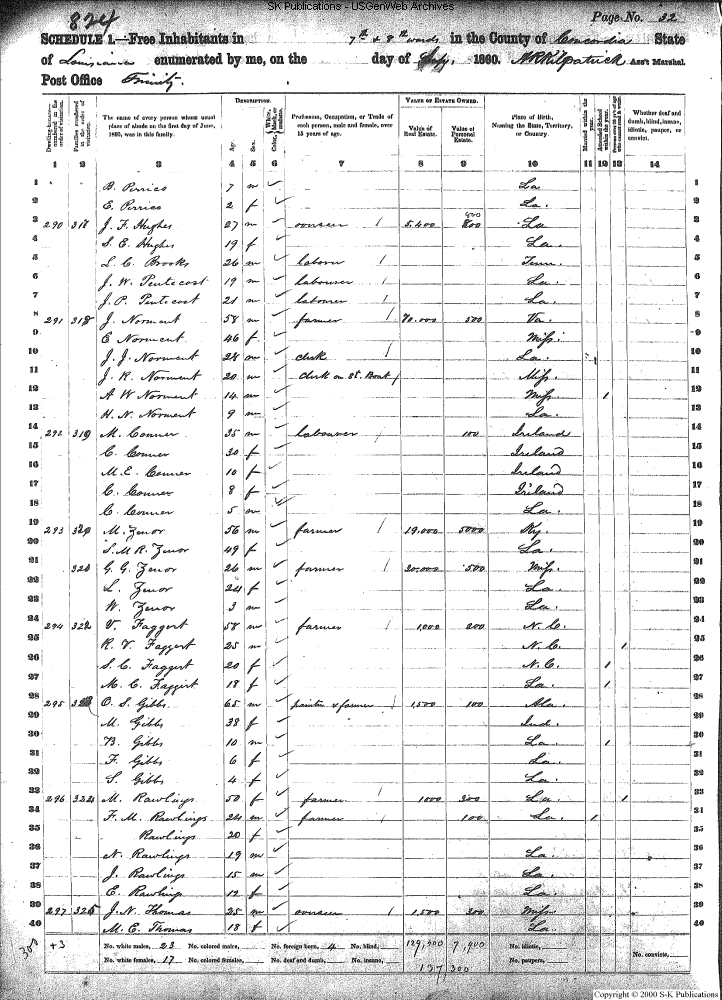 SK Publications - USGenWeb Archives
824
Page No. 32
SCHEDULE 1.—Free Inhabitants in 7th & 8th wards in the County of Concordia State
of Louisiana enumerated by me, on the day of July, 1860. Kilpatrick Ass't Marshal.
Post Office Trinity
Dwelling-houses numbered in the order of visitation.
Families numbered in the order of visitation.
The name of every person whose usual place of abode on the first day of June, 1860, was in this family.
DESCRIPTION.
Age.
Sex.
Color, White, black, or mulatto.
Profession, Occupation, or Trade of each person, male and female, over 15 years of age.
VALUE OF ESTATE OWNED.
Value of Real Estate.
Value of Personal Estate.
Place of Birth, Naming the State, Territory, or Country.
Married within the year.
Attended School within the year.
Whether deaf and dumb, blind, insane, idiotic, pauper, or convict.
1 2 3 4 5 6 7 8 9 10 11 12 13 14
1 B. Perries 7 m La 1
2 E. Perries 2 f La. 2
3 290 317 J. F. Hughes 27 m overseer 5.400 800 La 3
4 S. E. Hughes 19 f La. 4
5 L. C. Brooks 26 m laborer Tenn. 5
6 J. W. Pentecost 19 m labourer La. 6
7 J. P. Pentecost 21 m labourer La. 7
8 291 318 J. Norment 58 m farmer 70.000 500 Va. 8
9 E Norment 46 f Miss. 9
10 J. J. Norment 28 m clerk La. 10
11 J. R. Norment 20 m Clerk on St. Boat Miss. 11
12 A W Norment 14 m Miss 1 12
13 H. N. Norment 9 m La. 13
14 292 319 M. Conner 35 m labourer 100 Ireland 14
15 C. Conner 30 f Ireland 15
16 M. E. Conner 10 f Ireland 16
17 C. Conner 8 f Ireland 17
18 C. Conner 5 m La. 18
19 293 320 M. Zenor 56 m farmer 19.000 5000 Ky. 19
20 S. M. R. Zenor 49 f La. 20
21 321 G. G. Zenor 26 m farmer 20.000 500 Miss. 21
22 L. Zenor 24 f La. 22
23 W. Zenor 3 m La. 23
24 294 322 V. Faggert 58 m farmer 1,000 200 N. C. 24
25 R. V. Faggert 25 m N. C. 1 25
26 S. C. Faggert 20 f N. C. 1 26
27 M. C. Faggert 18 f La. 1 27
28 295 323 O. S. Gibbs 65 m painter & farmer 1,500 100 Ala. 28
29 M. Gibbs 38 f Ind. 29
30 B. Gibbs 10 m La. 1 30
31 F. Gibbs 6 f La. 31
32 S. Gibbs 4 f La. 32
33 296 324 M. Rawlings 50 f farmer 1000 300 La. 1 33
34 F. M. Rawlings 24 m farmer 100 La. 1 34
35 Rawlings 20 f 35
36 N. Rawlings 19 m La. 36
37 J. Rawlings 15 m La. 37
38 E. Rawlings 12 f La. 38
39 297 325 J. N. Thomas 25 m overseer 1,500 300 Miss. 39
40 M. E. Thomas 18 f La. 40
+3 No. white males, 23 No. colored males, No. foreign born, 4 No. blind, 129,400 7,900 No. idiotic, No. convicts,
No. white females, 17 No. colored females, No. deaf and dumb, No. insane, No. paupers,
137,300
Copyright © 2000 S-K Publications